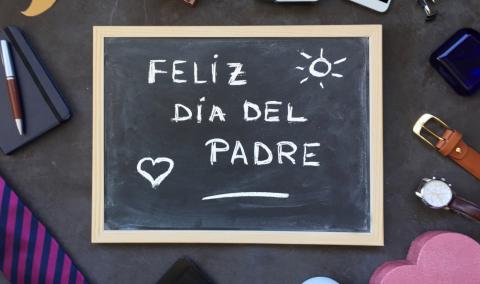 FELİZ
DÍA DEL
PADRE